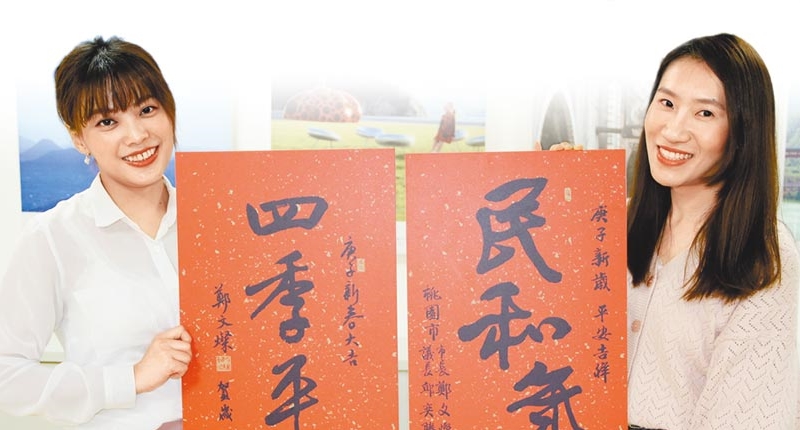 庚子新春大吉
四季平
鄭文燦 賀歲
庚子新歲 平安吉祥
民和氣
桃園市
市長鄭文
議長邱奕